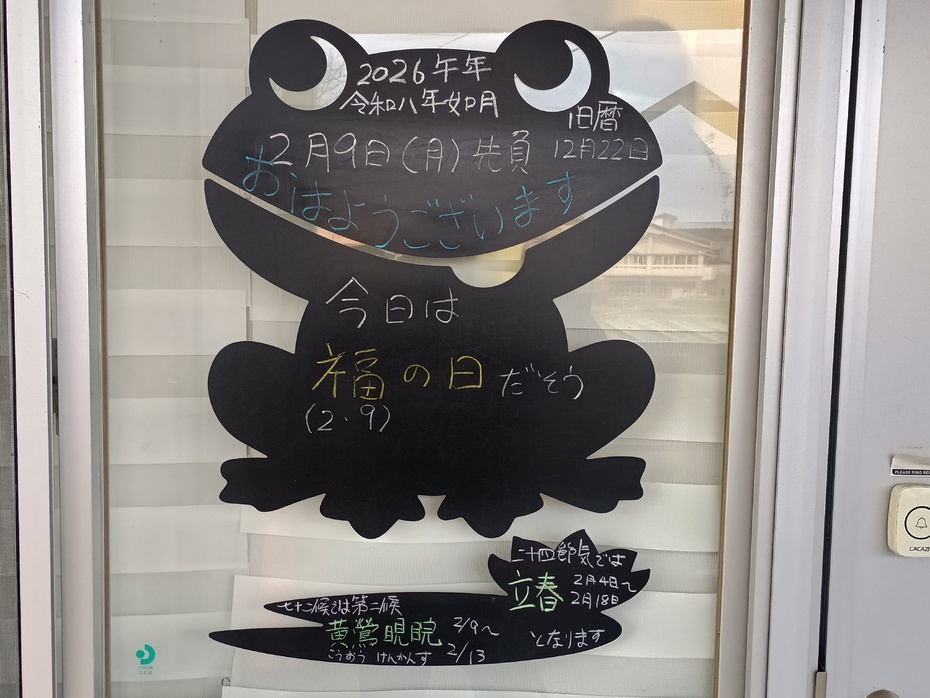 2026午年
令和八年如月
旧暦
2月9日(月)先負
12月22日
おはようございます
今日は
福の日だそう
(2.9)
二十四節気では
立春 2月4日〜
2月18日
となります
七十二候では第二候
黄鶯睍睆 2/9〜
2/13
こうおう けんかんす
PLEASE RING BELL
CACAZI